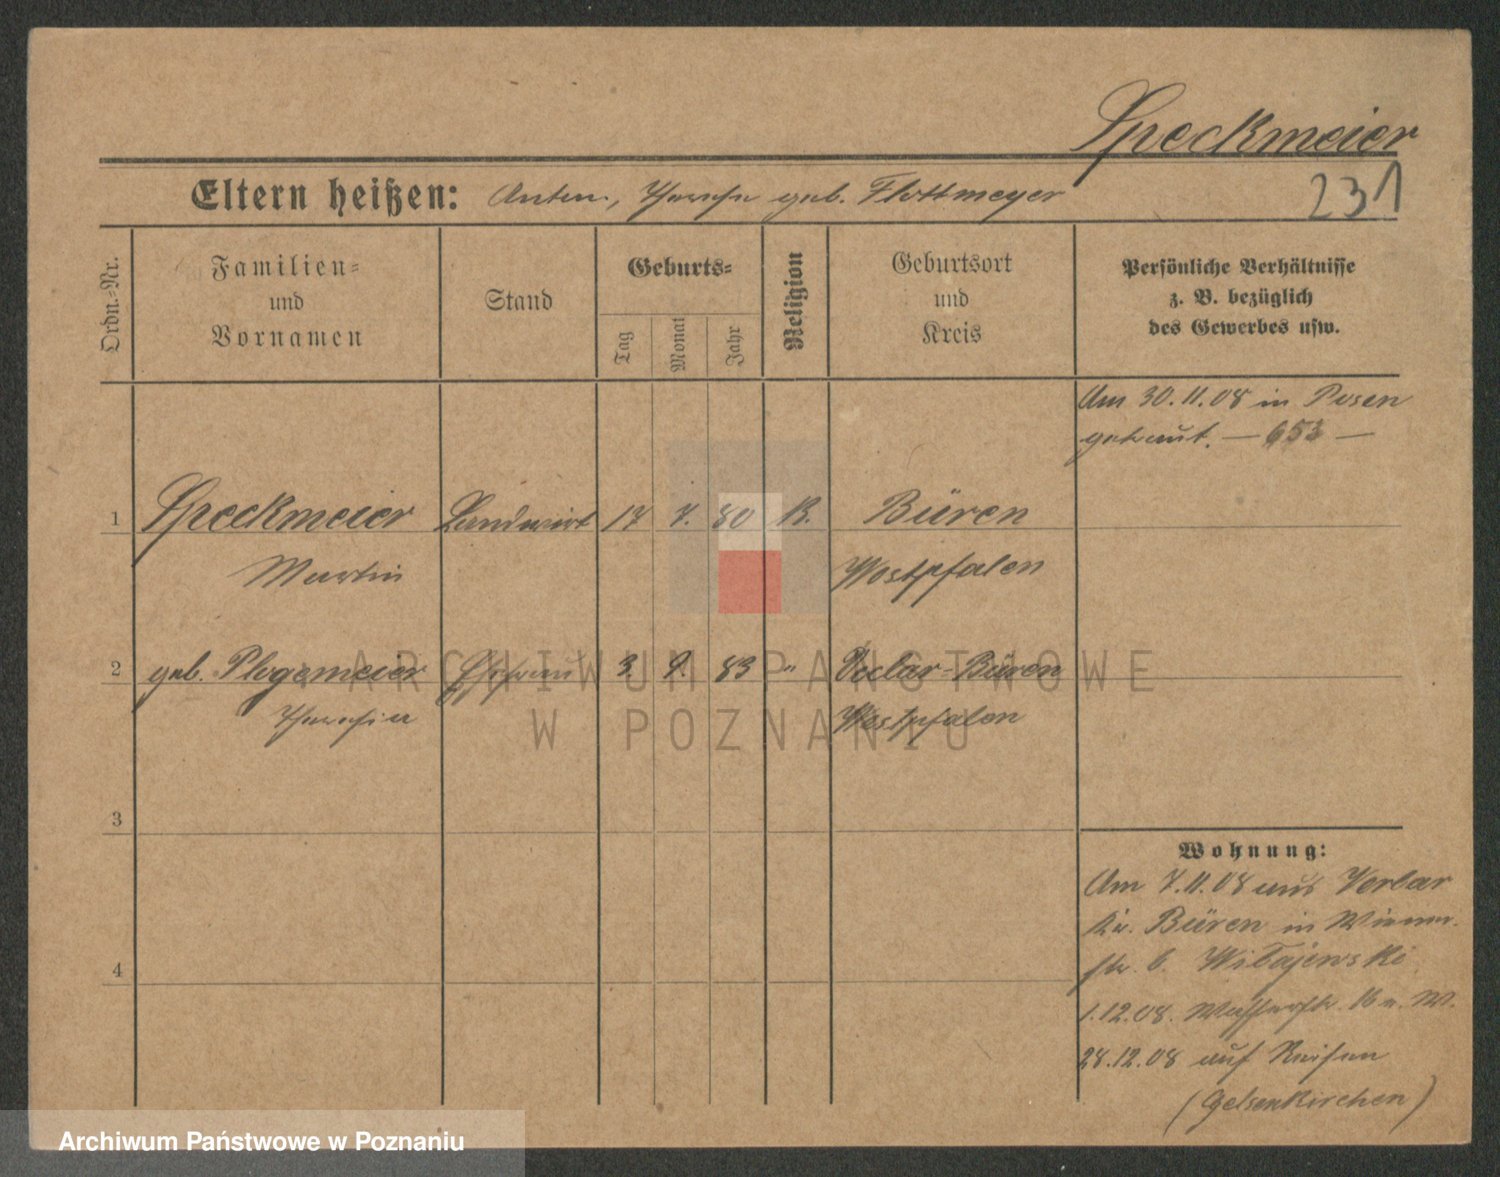 Speckmeier
Eltern heißen: Anton, Therese geb. Flottmeyer
231
Ordn.-Nr.
Familien-
und
Vornamen
Stand
Geburts-
Tag
Monat
Jahr
Religion
Geburtsort
und
Kreis
Persönliche Verhältnisse
z. B. bezüglich
des Gewerbes usw.
Am 30.11.08 in Posen
getraut. — 653 —
1 Speckmeier Landwirt 17 7. 80 K. Büren
Martin Westpfalen
2 geb. Plogemeier Ehefrau 3. 9. 83 " Büren
Theresia Westpfalen
3
4
Wohnung:
Am 7.11.08 aus Verlar
Kr. Büren in Wiener-
str. 6. Witajewski
1.12.08. Wasserstr. 16 e. W.
28.12.08 auf Reisen
(Gelsenkirchen)
ARCHIWUM PAŃSTWOWE
W POZNANIU
Archiwum Państwowe w Poznaniu